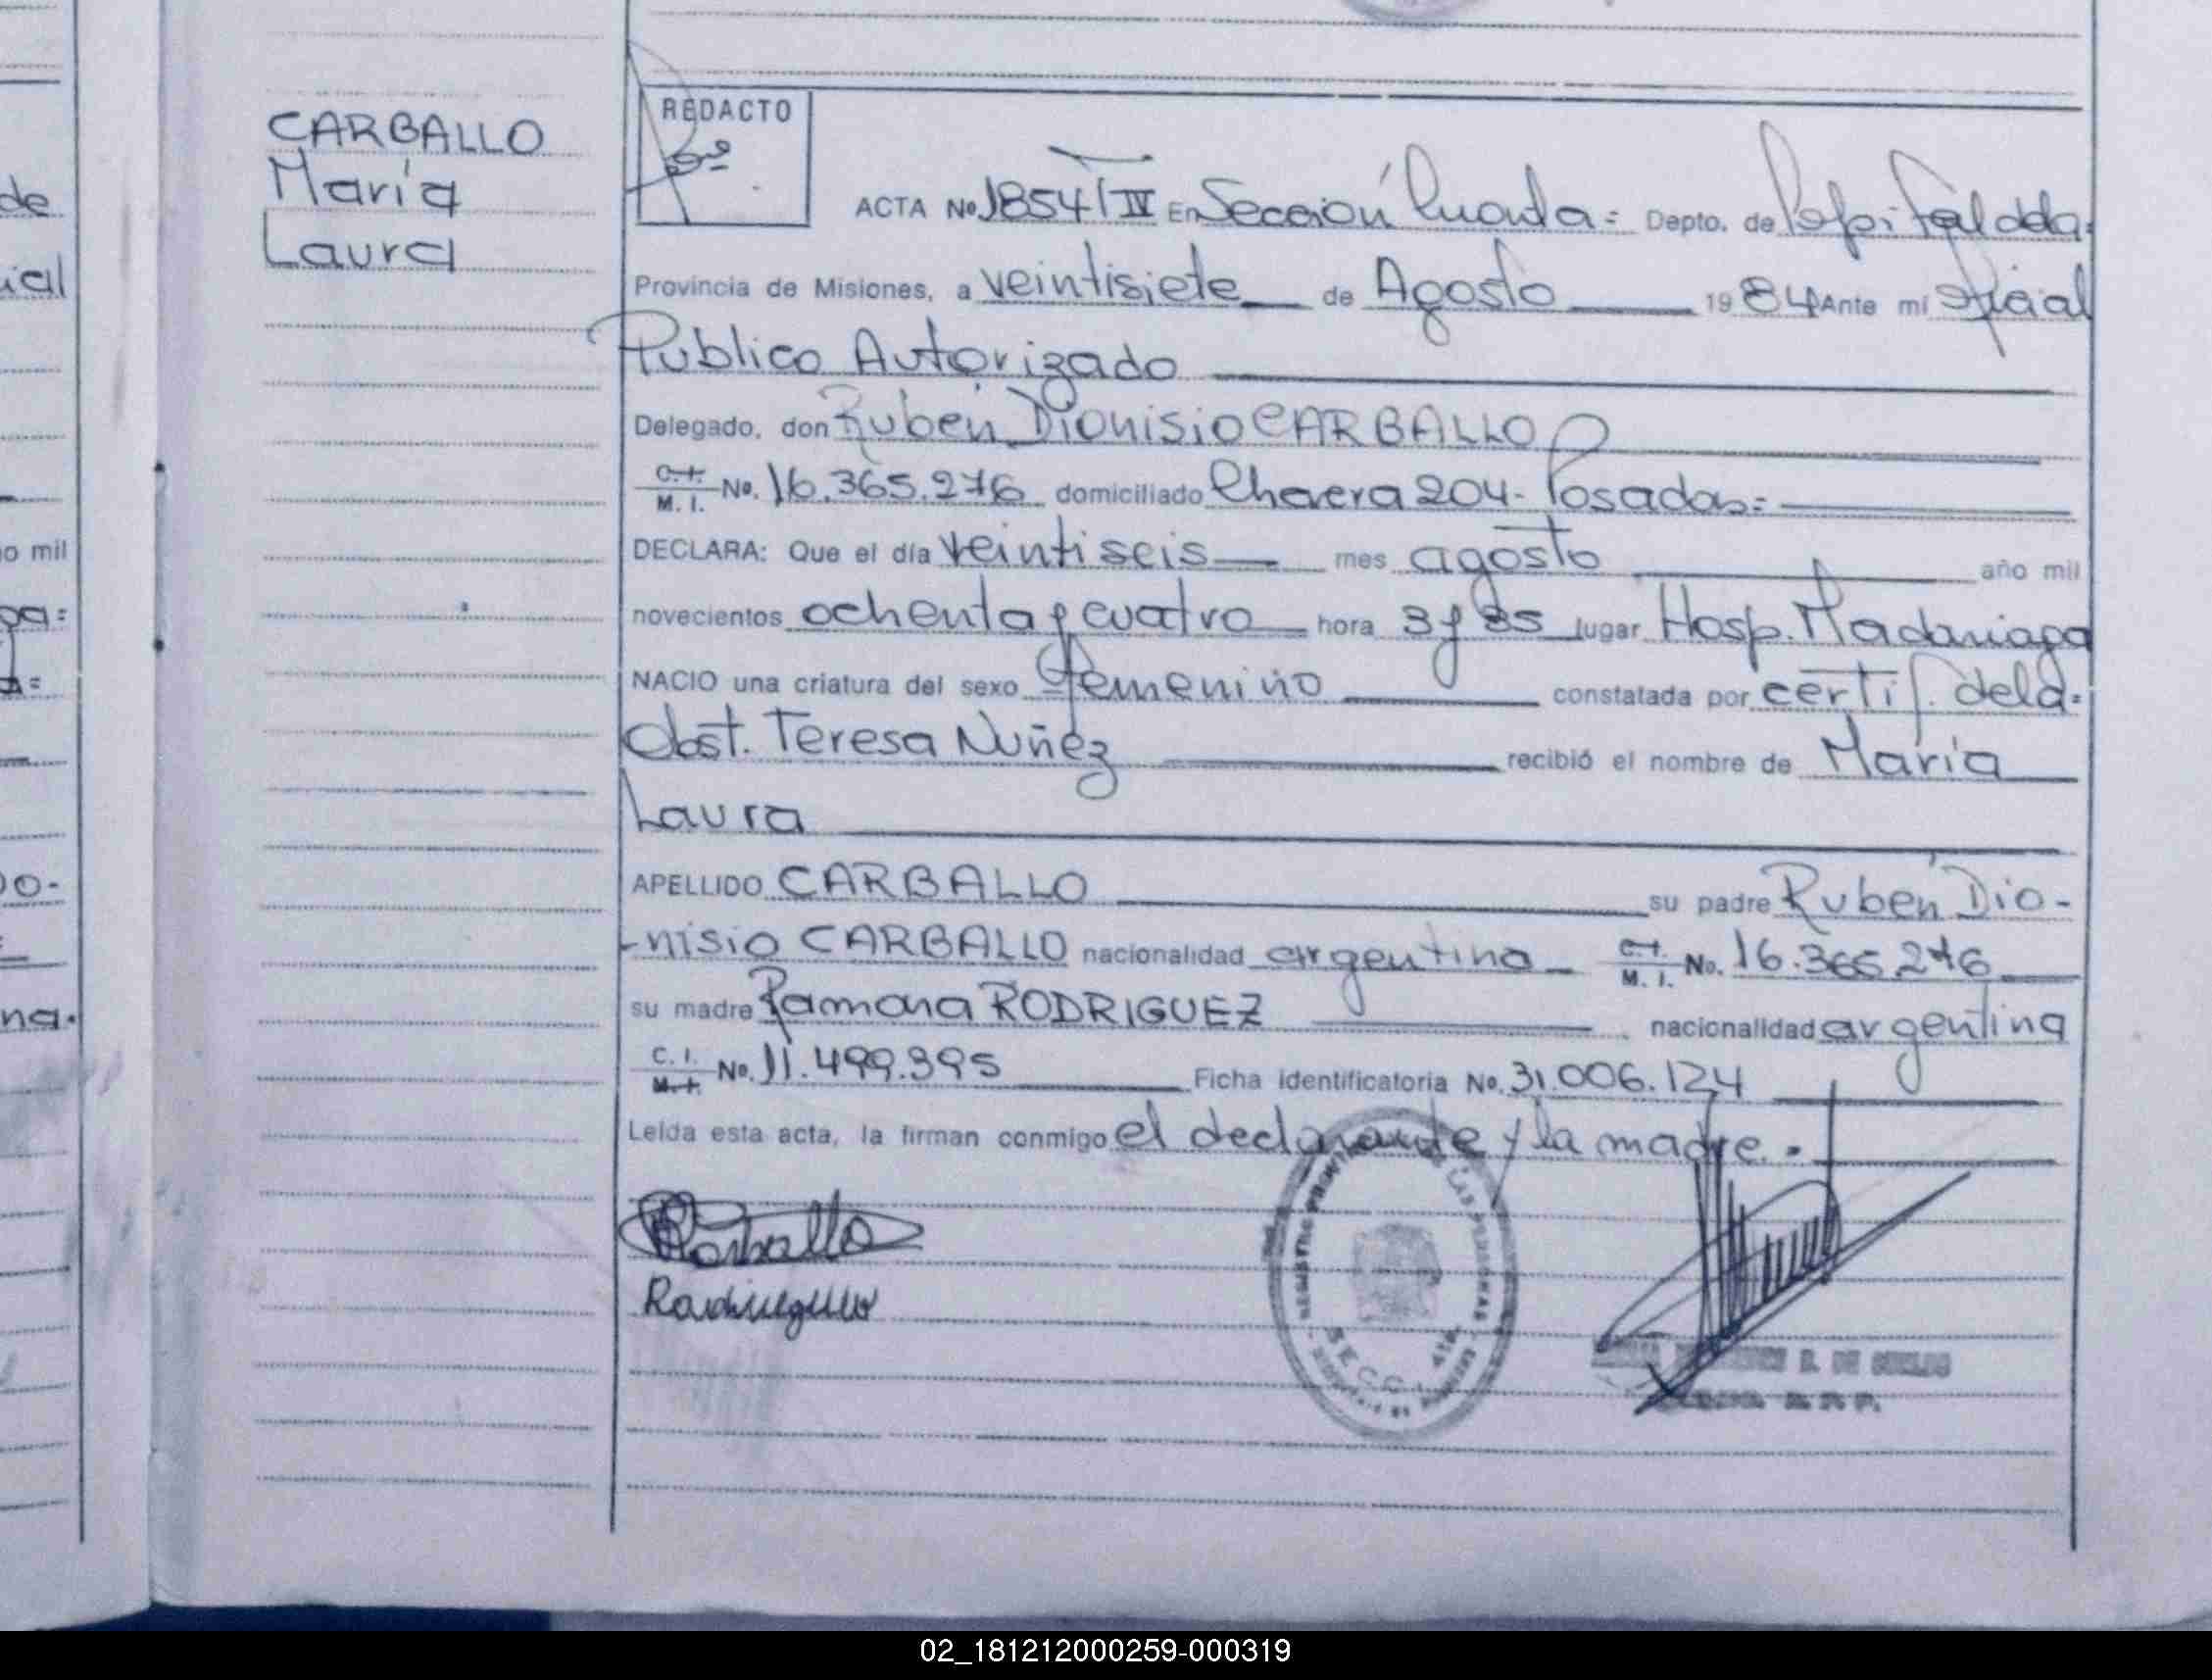 de
ial
o mil
pa=
a=
oo-
na.
CARBALLO
María
Laura
REDACTO
ACTA Nº 1854/IV En Sección Cuarta= Depto. de
Provincia de Misiones, a veintisiete de Agosto 1984 Ante mí oficial
Publico Autorizado
Delegado, don Rubén Dionisio CARBALLO
C.I. M.I. Nº. 16.365.276 domiciliado Chavera 204- Posadas=
DECLARA: Que el día veintiseis mes agosto año mil
novecientos ochenta y cuatro hora 3 y 35 lugar Hosp. Madariaga
NACIO una criatura del sexo femenino constatada por certif. dela=
Obst. Teresa Nuñez recibió el nombre de María
Laura
APELLIDO CARBALLO su padre Rubén Dio-
-nisio CARBALLO nacionalidad argentina C.I. M.I. No. 16.365.276
su madre Ramona RODRIGUEZ nacionalidad argentina
C.I. M.I. Nº. 11.499.395 Ficha identificatoria No. 31.006.124
Leída esta acta, la firman conmigo el declarante y la madre.
Carballo
REGISTRO LAS PERSONAS
SECC. 4ta.
02_181212000259-000319